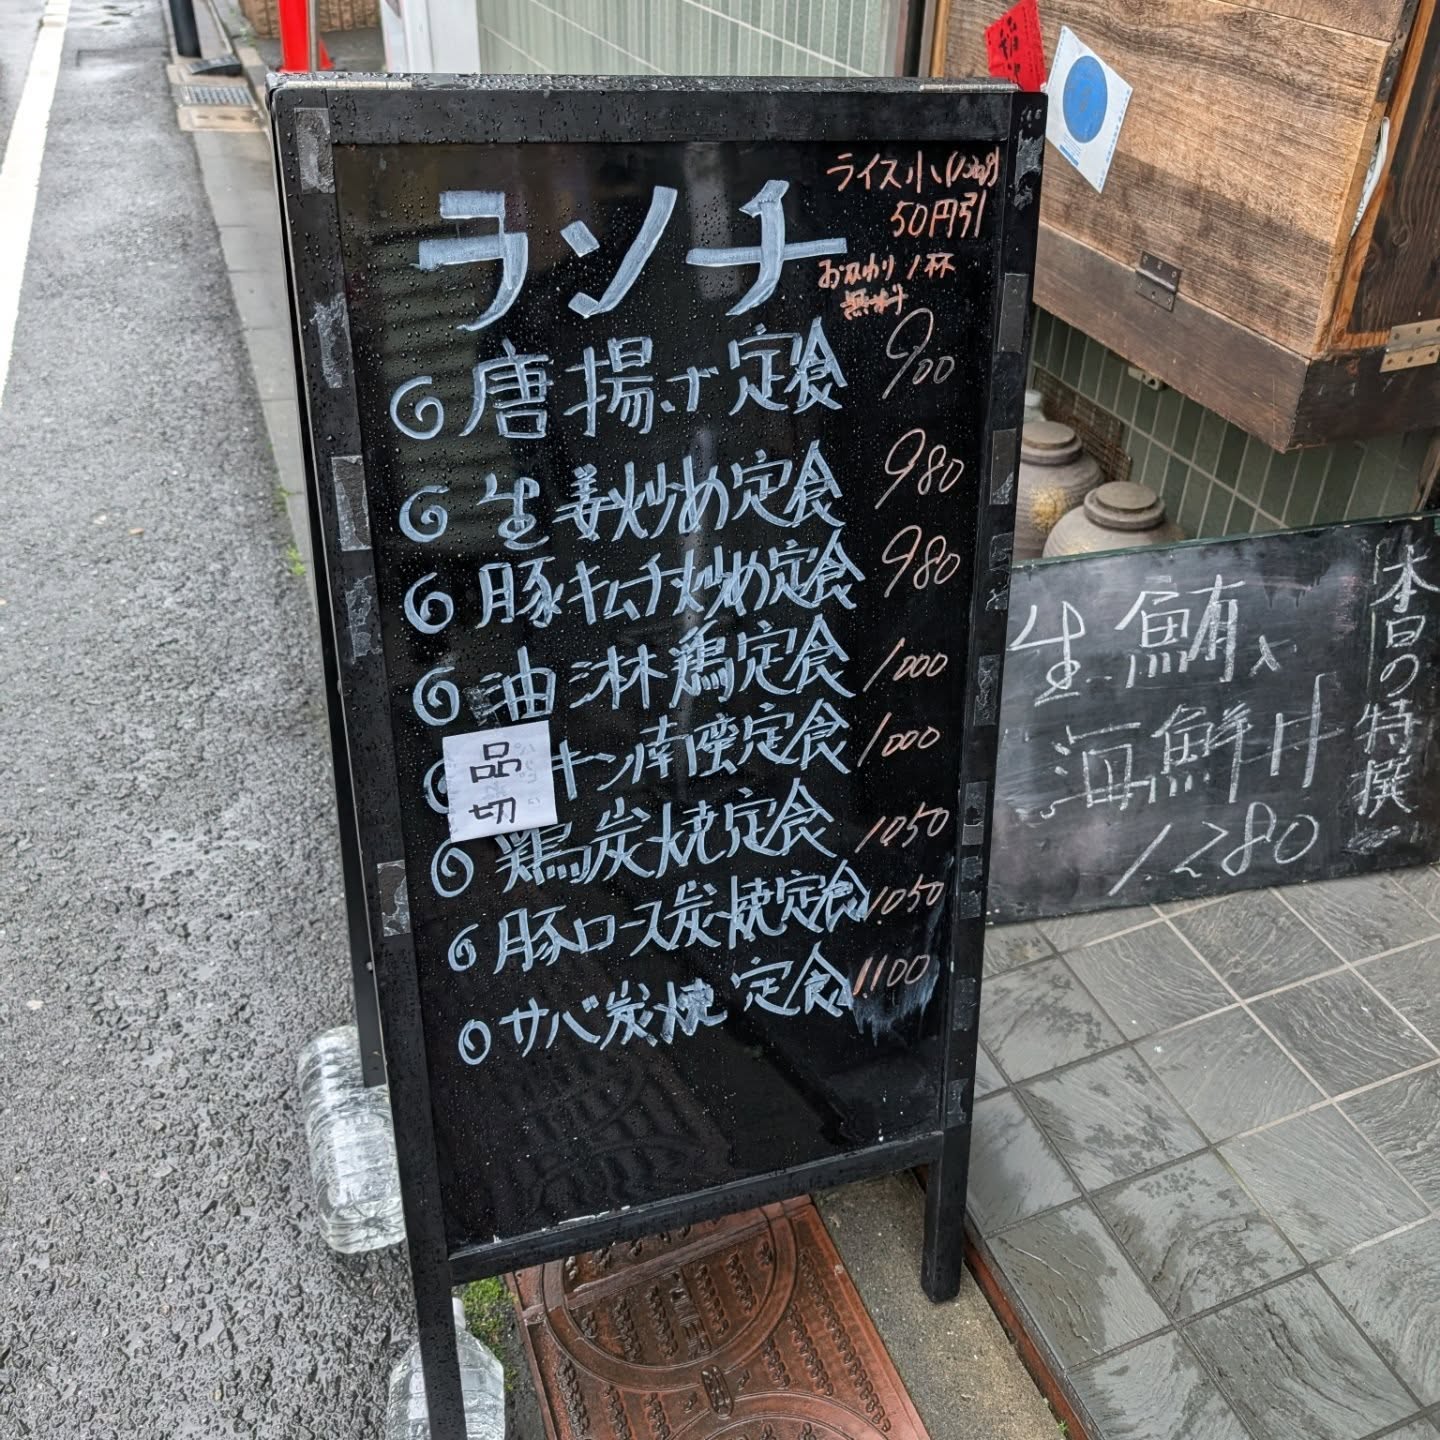 ランチ
ライス小
50円引
おかわり1杯
無料
唐揚げ定食 900
生姜炒め定食 980
豚キムチ炒め定食 980
油淋鶏定食 1000
品切
キン南蛮定食 1000
鶏炭焼定食 1050
豚ロース炭焼定食 1050
サバ炭焼定食 1.100
本日の特撰
生鮪
海鮮丼
1.280